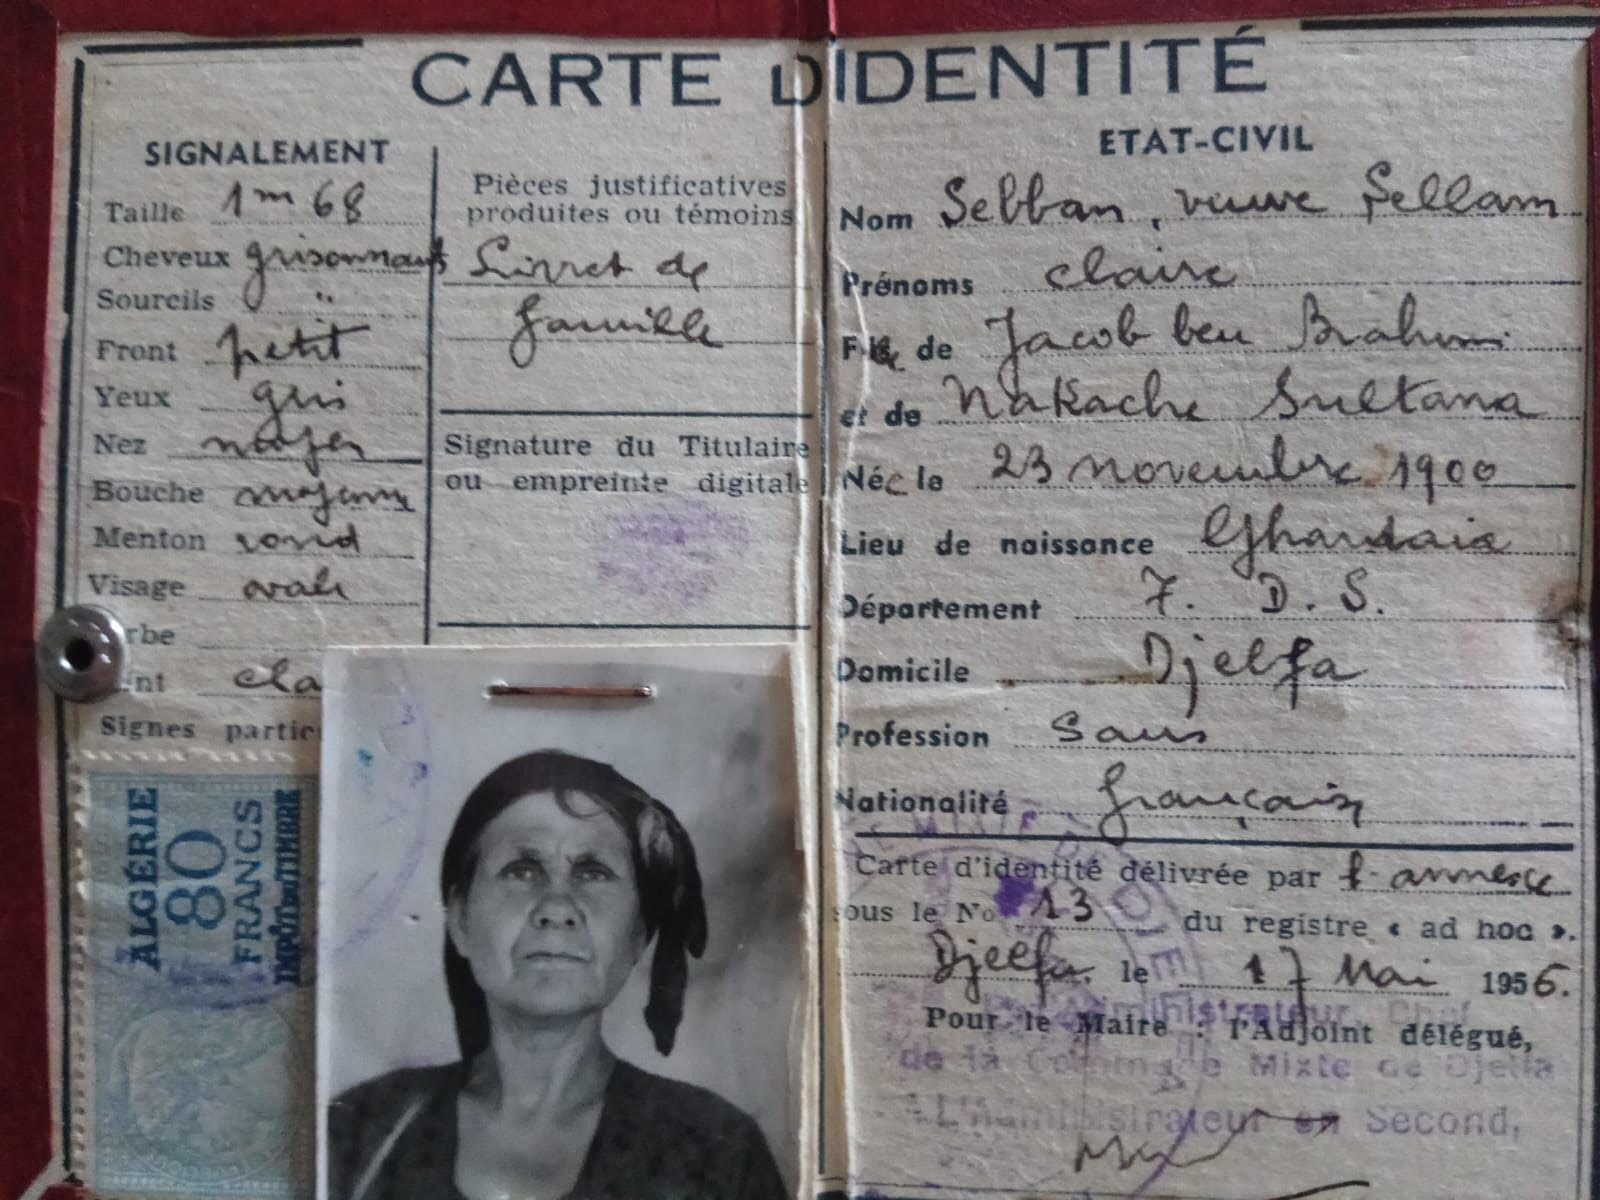 CARTE D'IDENTITÉ
SIGNALEMENT
Taille 1m68
Cheveux grisonnants
Sourcils "
Front petit
Yeux gris
Nez moyen
Bouche moyenne
Menton rond
Visage ovale
rbe
nt cla
Signes partic
ALGÉRIE
80
FRANCS
IMPÔT DU TIMBRE
Pièces justificatives
produites ou témoins
Livret de
famille
Signature du Titulaire
ou empreinte digitale
ETAT-CIVIL
Nom Sebban, veuve Sellam
Prénoms Claire
Fille de Jacob ben Brahim
et de Nakache Sultana
Née le 23 novembre 1900
Lieu de naissance Ghardaia
Département T. D. S.
Domicile Djelfa
Profession Sans
Nationalité française
Carte d'identité délivrée par l'annexe
sous le No 13 du registre « ad hoc ».
Djelfa, le 17 Mai 1956.
Pour le Maire : l'Adjoint délégué,
Administrateur, Chef
de la Commune Mixte de Djelfa
L'Administrateur en Second,